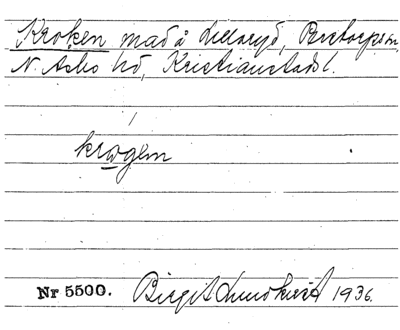 Kroken mad å Lillaryd, Perstorps sn,
N. Åsbo hd, Kristianstads l.
krogen
Nr 5500. Birgit Lundkvist 1936.